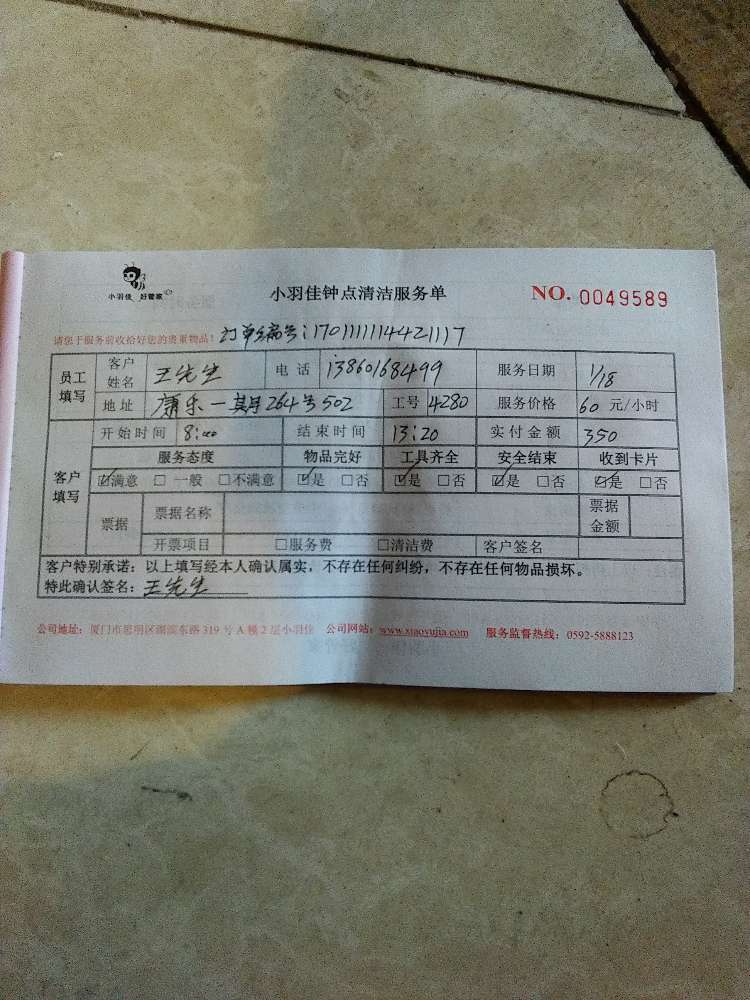 小羽佳 好管家
小羽佳钟点清洁服务单
NO. 0049589
请您于服务前收拾好您的贵重物品！ 订单编号:1701111144421117
员工填写 客户姓名 王先生 电话 13860168499 服务日期 1/18
地址 康乐一期264号502 工号 4280 服务价格 60 元/小时
客户填写 开始时间 8:00 结束时间 13:20 实付金额 350
服务态度 物品完好 工具齐全 安全结束 收到卡片
☑满意 □一般 □不满意 ☑是 □否 ☑是 □否 ☑是 □否 ☑是 □否
票据 票据名称 票据金额
开票项目 □服务费 □清洁费 客户签名
客户特别承诺：以上填写经本人确认属实，不存在任何纠纷，不存在任何物品损坏。
特此确认签名：王先生
公司地址：厦门市思明区湖滨东路 319 号 A 幢 2 层小羽佳 公司网站：www.xiaoyujia.com 服务监督热线：0592-5888123